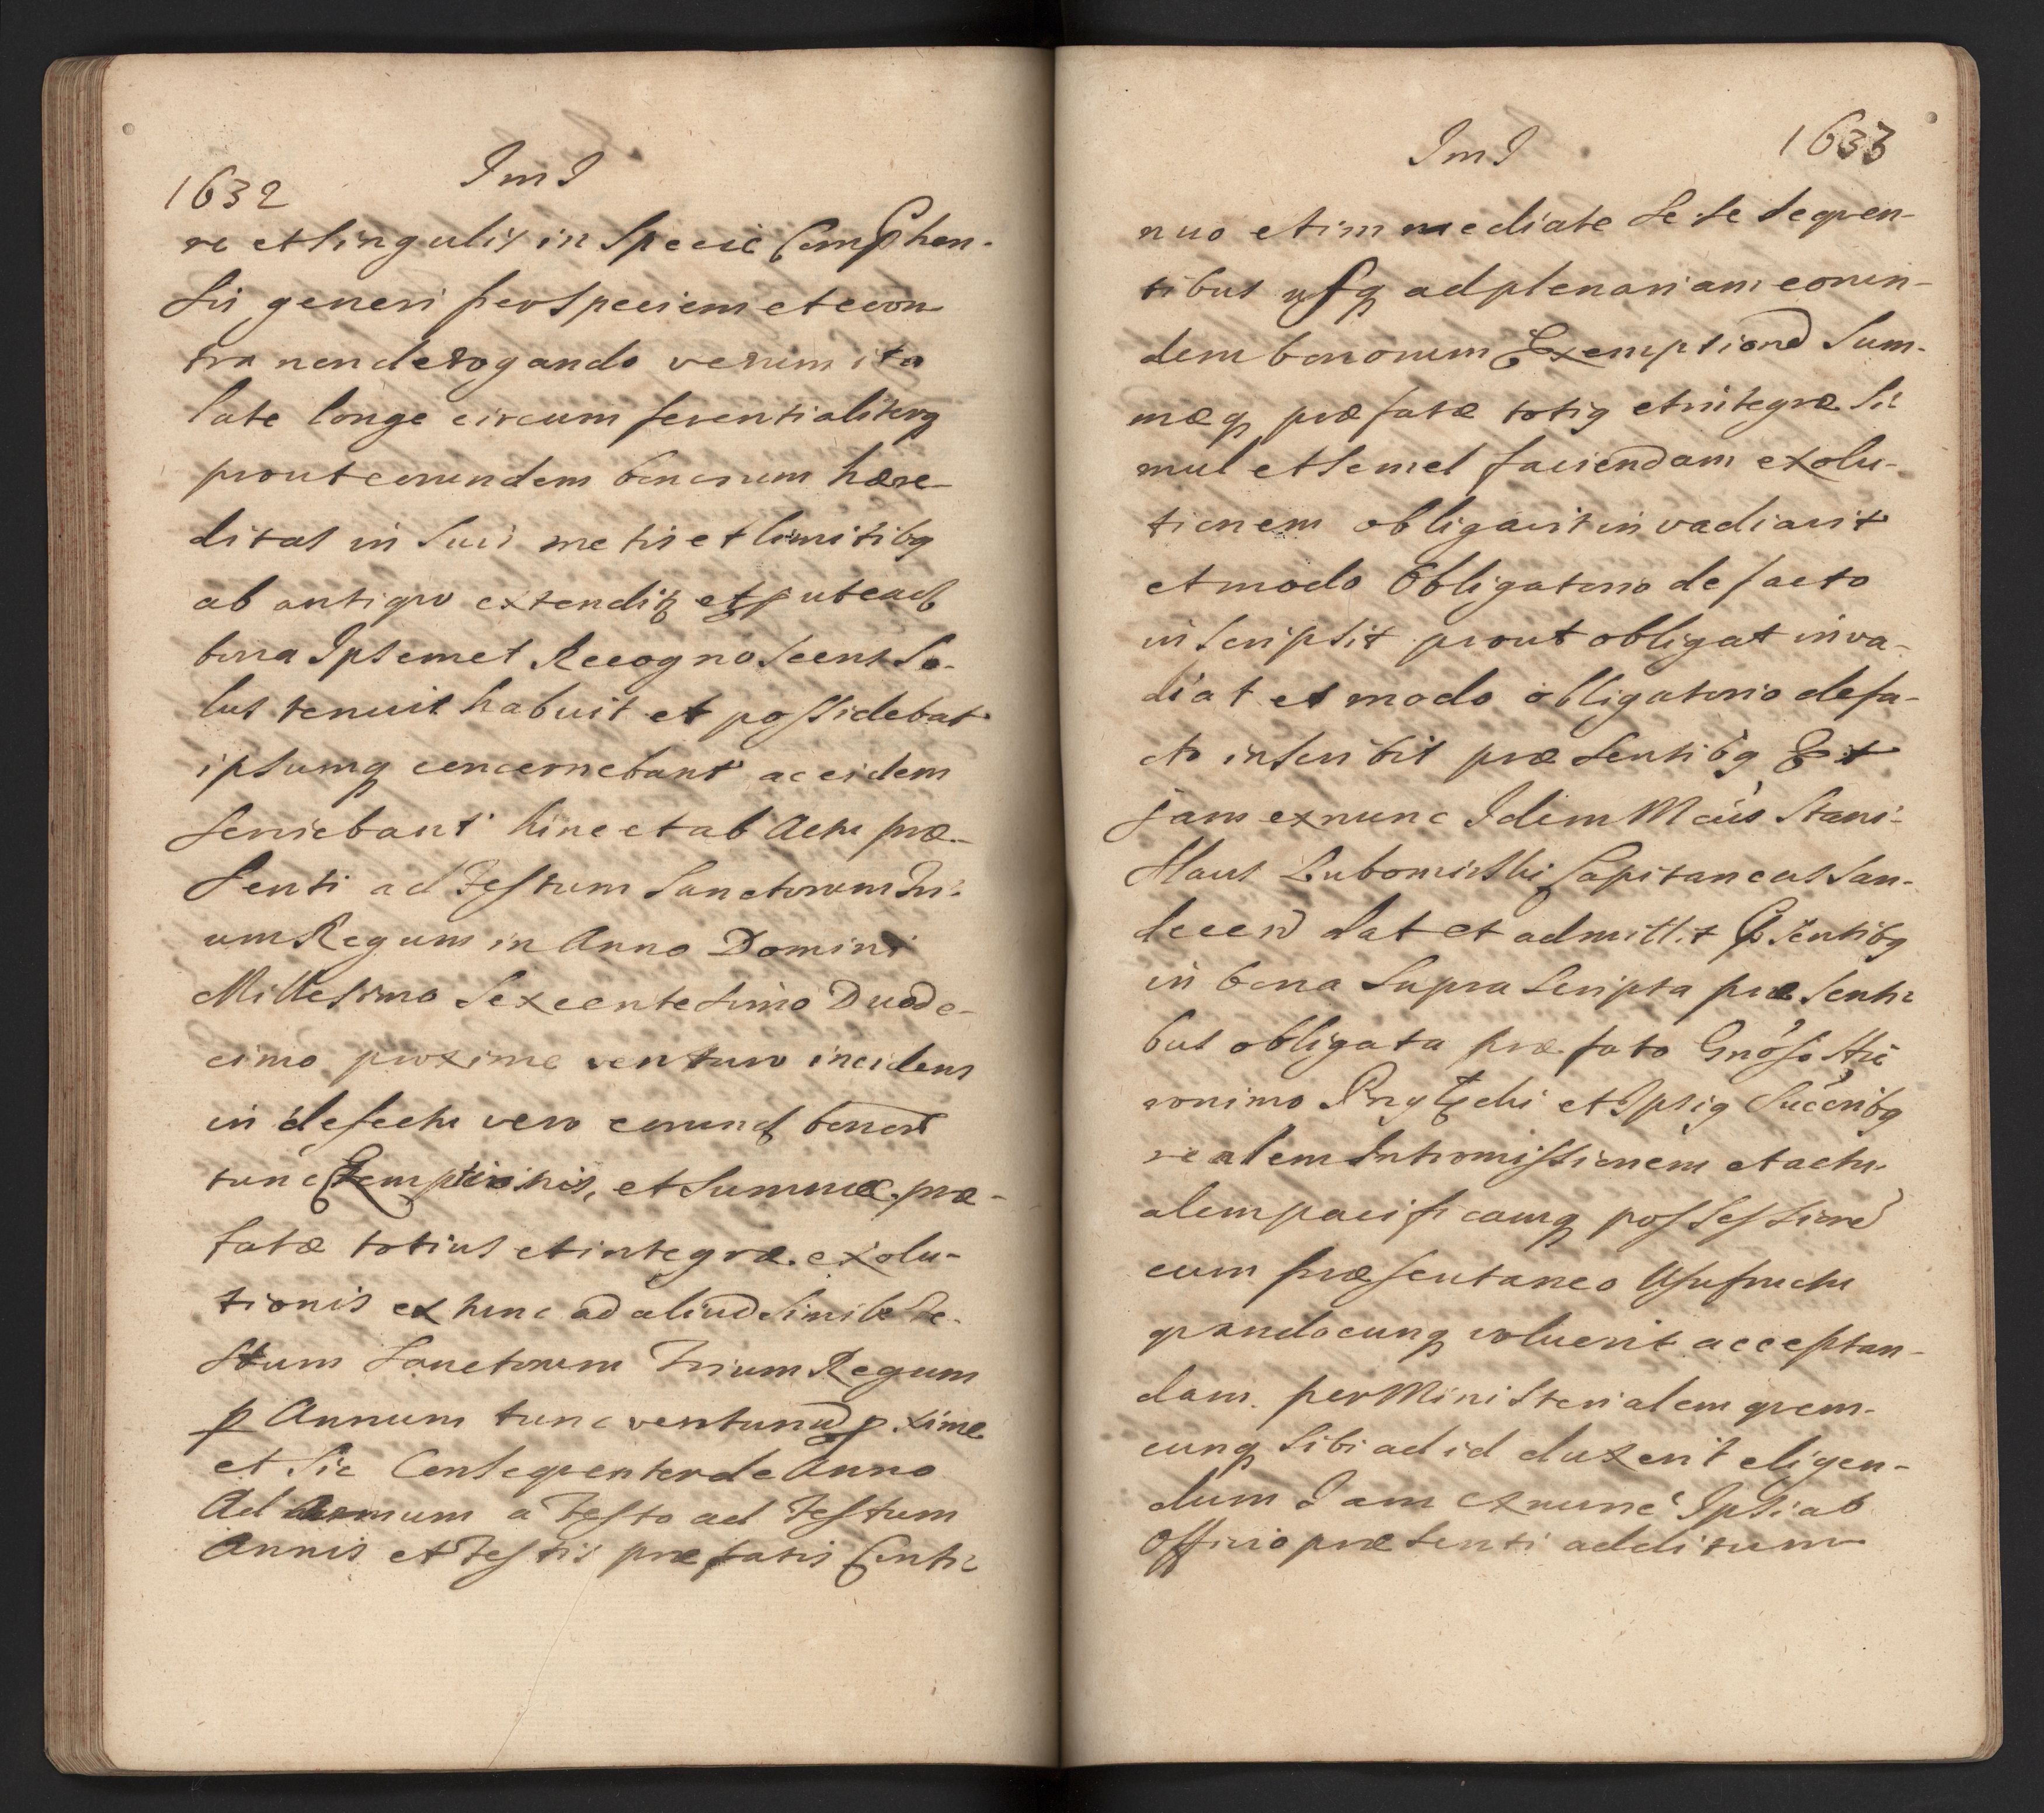 1632
ImI
re et singulis in Specie Comphen-
sis generi per Speciem et econ-
tra non derogando verum ita
late longe circum ferentialiterq
prout eorundem bonorum hære-
ditas in Suis metis et limitibq
ab antiquo extenditz et puteacz
bona Ipsemet Recognoscens So-
lus tenuit habuit et possidebat
ipsumq concernebant ac eidem
serviebant hinc et ab Actu præ-
senti ad Festum Sanctorum Tri-
um Regum in Anno Domini
Millesimo Sexcentesimo Duode-
cimo proxime venturo incidens
in defectu vero eorund bonor
tunc Exemptionis, et Summæ præ-
fatæ totius et integræ exolu-
tionis ex tunc ad aliud Simile Fe-
stum Sanctorum Trium Regum
p Annum tunc ventur pxime
et Sic Consequenter de Anno
Ad Annum a Festo ad Festum
Annis et Festis præfatis Conti-
ImI
1633
nuo et immediate Se se Sequen-
tibus usq ad plenariam eorun-
dem bonorum Exemptione Sum-
mæq præfatæ totiq et integræ Si-
mul et Semel faciendam exolu-
tionem obligavit invadiavit
et modo Obligatorio de facto
inscripsit prout obligat inva-
diat et modo obligatorio defa-
cto inscribit præsentibq Et
jam exnunc Idem Mcus Stani-
slaus Lubomirski Capitaneus San-
decen dat et admittit psentibq
in bona Supra Scripta præsenti-
bus obligata præfato Gnoso Hie
ronimo Przyłęcki et Ipsiq Succribq
realem Intromissionem et actu-
alem pacificamq possessione
cum præsentaneo Usufructu
quandocunq voluerit acceptan-
dam per Ministerialem quem-
cunq Sibi ad id duxerit eligen-
dum Jam exnunc Ipsi ab
Officio præsenti additum